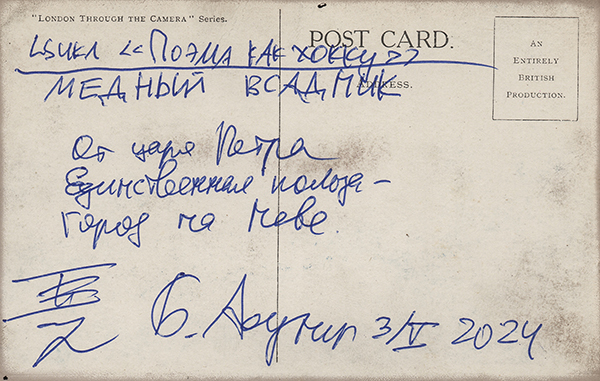 "London Through the Camera" Series.
POST CARD.
AN
ENTIRELY
BRITISH
PRODUCTION.
ADDRESS.
ЦИКЛ «ПОЭМА КАК ХОККУ»
МЕДНЫЙ ВСАДНИК
От царя Петра
Единственная польза –
Город на Неве.
Б. Акунин 3/V 2024